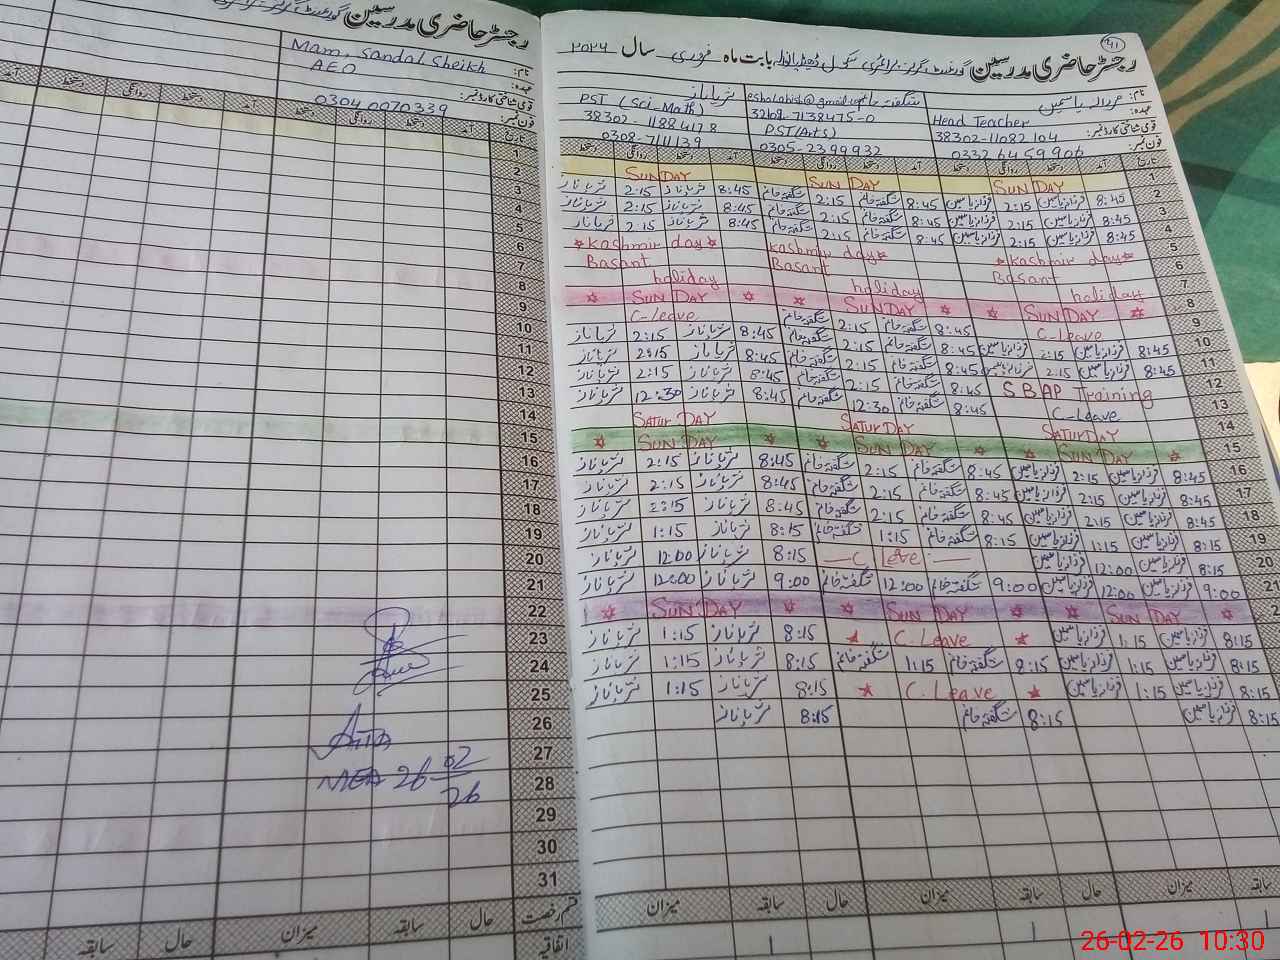 رجسٹر حاضری مدرسین
نام: Mam. Sandal Sheikh
عہدہ: AEO
قومی شناختی کارڈ نمبر:
فون نمبر: 0304 0070339
تاریخ آمد دستخط روانگی دستخط آمد دستخط روانگی دستخط
1
2
3
4
5
6
7
8
9
10
11
12
13
14
15
16
17
18
19
20
21
22
23
24
25
26
27
28
29
30
31
MEA 26 02/26
قسم رخصت حال سابقہ میزان حال سابقہ
اتفاقیہ
41
رجسٹر حاضری مدرسین گورنمنٹ گرلز پرائمری سکول بابت ماہ فروری سال ۲۰۲۶
نام: فرزانہ یاسمین شگفتہ خانم eshalabish@gmail ثریا ناز
عہدہ: Head Teacher 32108-7138475-0 PST (Sci-Math)
قومی شناختی کارڈ نمبر: 38302-11082104 PST (Arts) 38302-11884178
فون نمبر: 0332 6459906 0305-2399932 0308-7111139
تاریخ آمد دستخط روانگی دستخط آمد دستخط روانگی دستخط آمد دستخط روانگی دستخط
1 SUNDAY SUNDAY SUNDAY
2 8:45 فرزانہ یاسمین 2:15 فرزانہ یاسمین 8:45 شگفتہ خانم 2:15 شگفتہ خانم 8:45 ثریا ناز 2:15 ثریا ناز
3 8:45 فرزانہ یاسمین 2:15 فرزانہ یاسمین 8:45 شگفتہ خانم 2:15 شگفتہ خانم 8:45 ثریا ناز 2:15 ثریا ناز
4 8:45 فرزانہ یاسمین 2:15 فرزانہ یاسمین 8:45 شگفتہ خانم 2:15 شگفتہ خانم 8:45 ثریا ناز 2:15 ثریا ناز
5 Kashmir day Kashmir day Kashmir day
6 Basant Basant Basant
7 holiday holiday holiday
8 SUNDAY SUNDAY SUNDAY
9 C-Leave 8:45 شگفتہ خانم 2:15 شگفتہ خانم C-leave
10 8:45 فرزانہ یاسمین 2:15 فرزانہ یاسمین 8:45 شگفتہ خانم 2:15 شگفتہ خانم 8:45 ثریا ناز 2:15 ثریا ناز
11 8:45 فرزانہ یاسمین 2:15 فرزانہ یاسمین 8:45 شگفتہ خانم 2:15 شگفتہ خانم 8:45 ثریا ناز 2:15 ثریا ناز
12 SBAP Training 8:45 شگفتہ خانم 2:15 شگفتہ خانم 8:45 ثریا ناز 2:15 ثریا ناز
13 C-Leave 8:45 شگفتہ خانم 12:30 شگفتہ خانم 8:45 ثریا ناز 12:30 ثریا ناز
14 SATURDAY SATURDAY SATURDAY
15 SUNDAY SUNDAY SUNDAY
16 8:45 فرزانہ یاسمین 2:15 فرزانہ یاسمین 8:45 شگفتہ خانم 2:15 شگفتہ خانم 8:45 ثریا ناز 2:15 ثریا ناز
17 8:45 فرزانہ یاسمین 2:15 فرزانہ یاسمین 8:45 شگفتہ خانم 2:15 شگفتہ خانم 8:45 ثریا ناز 2:15 ثریا ناز
18 8:45 فرزانہ یاسمین 2:15 فرزانہ یاسمین 8:45 شگفتہ خانم 2:15 شگفتہ خانم 8:45 ثریا ناز 2:15 ثریا ناز
19 8:15 فرزانہ یاسمین 1:15 فرزانہ یاسمین 8:15 شگفتہ خانم 1:15 شگفتہ خانم 8:15 ثریا ناز 1:15 ثریا ناز
20 8:15 فرزانہ یاسمین 12:00 فرزانہ یاسمین C leve 8:15 ثریا ناز 12:00 ثریا ناز
21 9:00 فرزانہ یاسمین 12:00 فرزانہ یاسمین 9:00 شگفتہ خانم 12:00 شگفتہ خانم 9:00 ثریا ناز 12:00 ثریا ناز
SUNDAY SUNDAY SUNDAY
8:15 فرزانہ یاسمین 1:15 فرزانہ یاسمین C.Leave 8:15 ثریا ناز 1:15 ثریا ناز
8:15 فرزانہ یاسمین 1:15 فرزانہ یاسمین 8:15 شگفتہ خانم 1:15 شگفتہ خانم 8:15 ثریا ناز 1:15 ثریا ناز
8:15 فرزانہ یاسمین 1:15 فرزانہ یاسمین C.Leave 8:15 ثریا ناز 1:15 ثریا ناز
8:15 فرزانہ یاسمین 8:15 شگفتہ خانم 8:15 ثریا ناز
سابقہ میزان حال سابقہ میزان حال سابقہ میزان
1 1 1
26-02-26 10:30